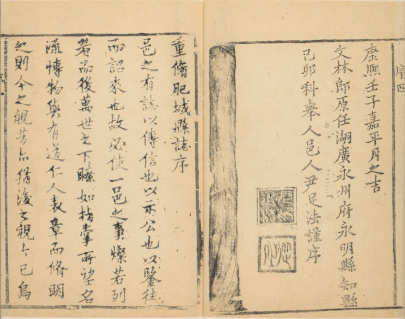 康熙壬子嘉平月之吉
文林郎原任湖廣永州府永明縣知縣
己卯科舉人邑人尹足法謹序
重脩肥城縣誌序
邑之有誌以傳信也以示公也以鑒往
而詔來也故必使一邑之事燦若列
眉而後萬世之下瞭如指掌而望名
流博物與有道仁人表章而脩明
之則今之視昔亦猶後之視今已烏